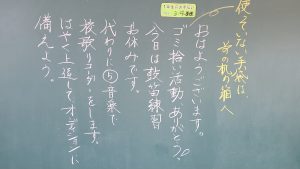 使っていない手袋は、
前の机の箱へ
おはようございます。
ゴミ拾い活動ありがとう。
今日は鼓笛練習
お休みです。
代わりに⑤音楽で
校歌テストをします。
はやく上達してオーディションに
備えよう。